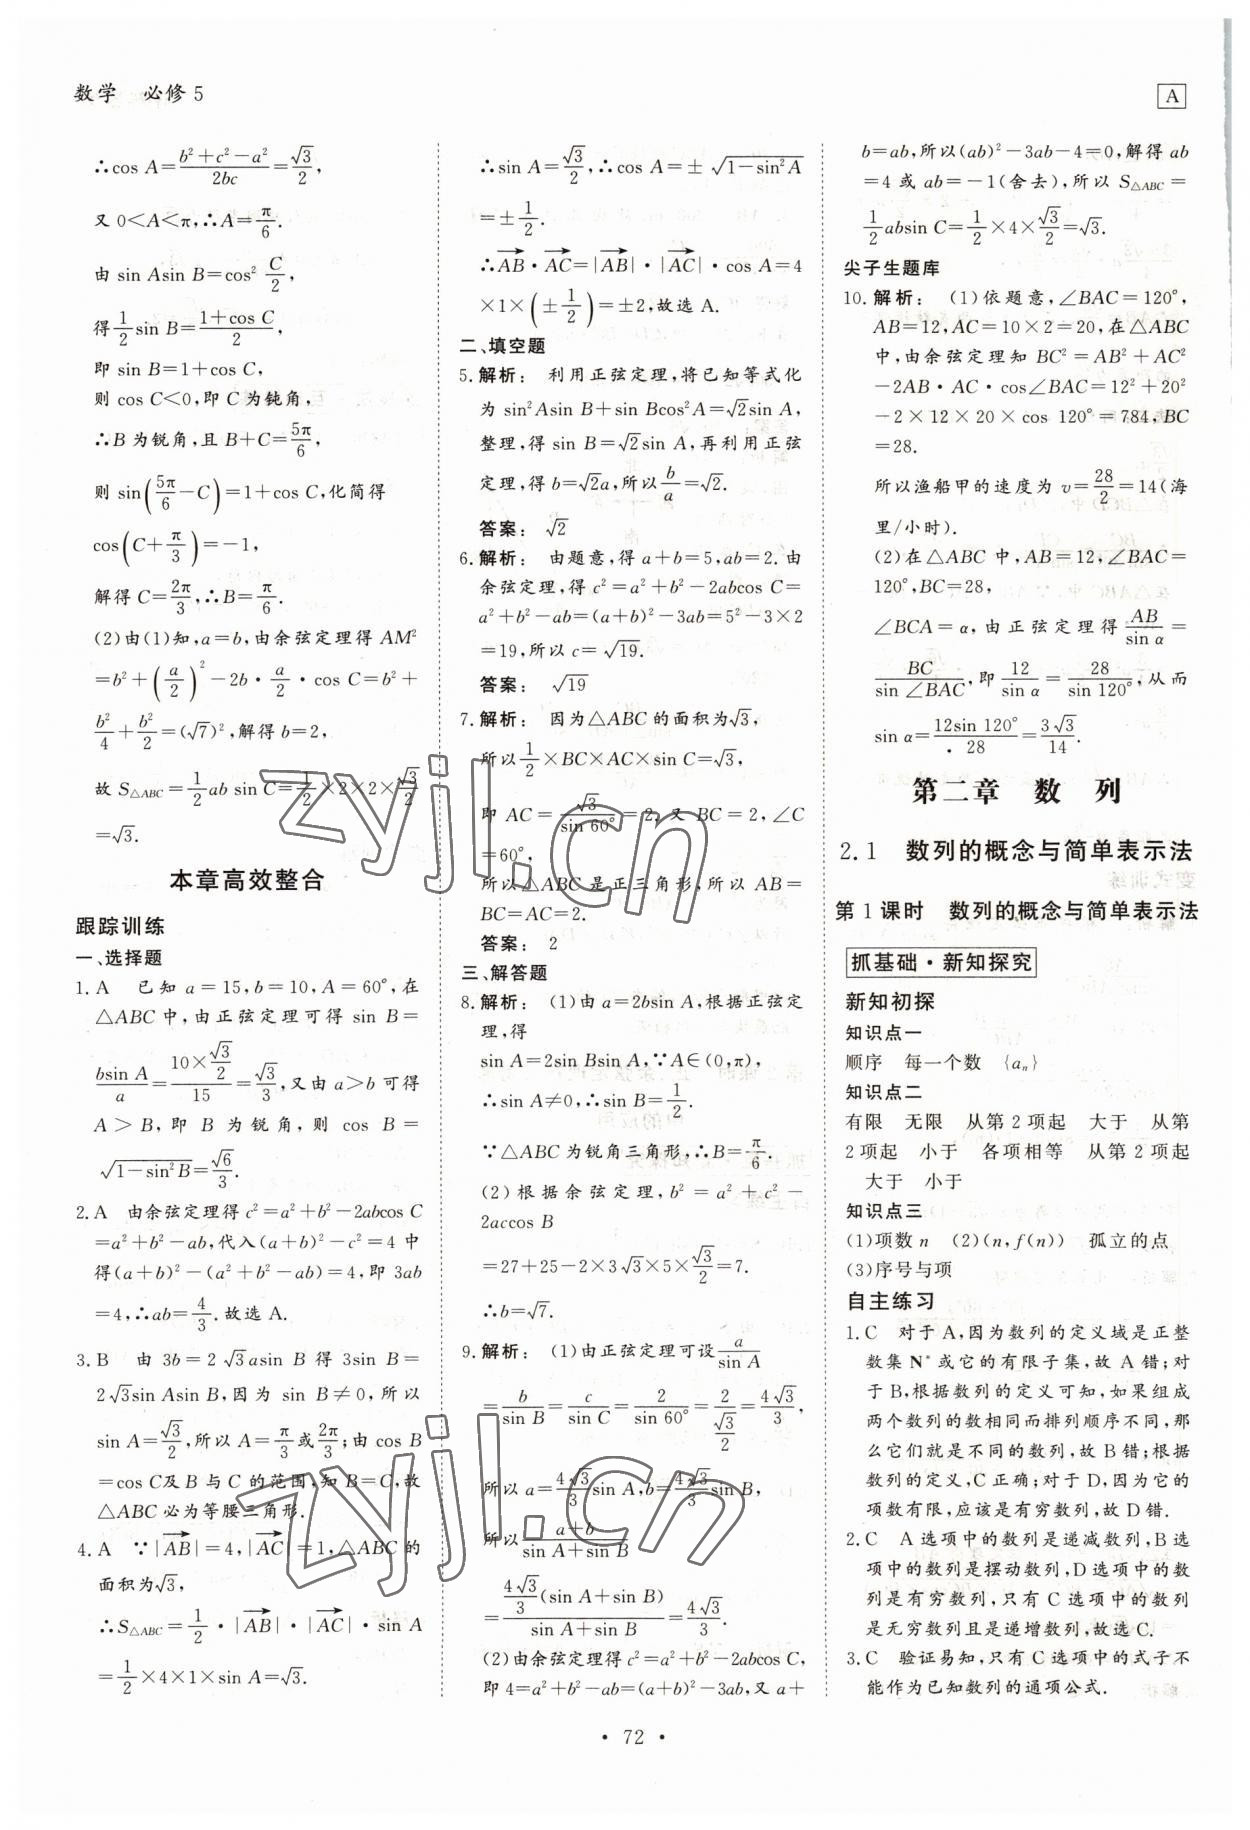 数学 必修5
A
∴cos A=\frac{b²+c²-a²}{2bc}=\frac{√3}{2},
又 0<A<π,∴A=\frac{π}{6}.
由 sin Asin B=cos² \frac{C}{2},
得\frac{1}{2}sin B=\frac{1+cos C}{2},
即 sin B=1+cos C,
则 cos C<0,即 C 为钝角,
∴B 为锐角,且 B+C=\frac{5π}{6},
则 sin(\frac{5π}{6}-C)=1+cos C,化简得
cos(C+\frac{π}{3})=-1,
解得 C=\frac{2π}{3},∴B=\frac{π}{6}.
(2)由(1)知,a=b,由余弦定理得 AM²
=b²+(\frac{a}{2})²-2b·\frac{a}{2}·cos C=b²+
\frac{b²}{4}+\frac{b²}{2}=(√7)²,解得 b=2,
故 S△ABC=\frac{1}{2}ab sin C=\frac{1}{2}×2×2×\frac{√3}{2}
=√3.
本章高效整合
跟踪训练
一、选择题
1. A 已知 a=15,b=10,A=60°,在
△ABC 中,由正弦定理可得 sin B=
\frac{bsin A}{a}=\frac{10×\frac{√3}{2}}{15}=\frac{√3}{3},又由 a>b 可得
A>B,即 B 为锐角,则 cos B=
√(1-sin²B)=\frac{√6}{3}.
2. A 由余弦定理得 c²=a²+b²-2abcos C
=a²+b²-ab,代入(a+b)²-c²=4 中
得(a+b)²-(a²+b²-ab)=4,即 3ab
=4,∴ab=\frac{4}{3}.故选 A.
3. B 由 3b=2√3asin B 得 3sin B=
2√3sin Asin B,因为 sin B≠0,所以
sin A=\frac{√3}{2},所以 A=\frac{π}{3}或\frac{2π}{3};由 cos B
=cos C及 B 与 C 的范围,知 B=C,故
△ABC 必为等腰三角形.
4. A ∵|AB|=4,|AC|=1,△ABC 的
面积为√3,
∴S△ABC=\frac{1}{2}·|AB|·|AC|·sin A
=\frac{1}{2}×4×1×sin A=√3.
∴sin A=\frac{√3}{2},∴cos A=±√(1-sin²A)
=±\frac{1}{2}.
∴AB·AC=|AB|·|AC|·cos A=4
×1×(±\frac{1}{2})=±2,故选 A.
二、填空题
5. 解析: 利用正弦定理,将已知等式化
为 sin²Asin B+sin Bcos²A=√2sin A,
整理,得 sin B=√2sin A,再利用正弦
定理,得 b=√2a,所以\frac{b}{a}=√2.
答案: √2
6. 解析: 由题意,得 a+b=5,ab=2.由
余弦定理,得 c²=a²+b²-2abcos C=
a²+b²-ab=(a+b)²-3ab=5²-3×2
=19,所以 c=√19.
答案: √19
7. 解析: 因为△ABC 的面积为√3,
所以\frac{1}{2}×BC×AC×sin C=√3,
即 AC=\frac{√3}{sin 60°}=2,又 BC=2,∠C
=60°,
所以△ABC 是正三角形,所以 AB=
BC=AC=2.
答案: 2
三、解答题
8. 解析: (1)由 a=2bsin A,根据正弦定
理,得
sin A=2sin Bsin A,∵A∈(0,π),
∴sin A≠0,∴sin B=\frac{1}{2}.
∵△ABC 为锐角三角形,∴B=\frac{π}{6}.
(2)根据余弦定理,b²=a²+c²-
2accos B
=27+25-2×3√3×5×\frac{√3}{2}=7.
∴b=√7.
9. 解析: (1)由正弦定理可设\frac{a}{sin A}
=\frac{b}{sin B}=\frac{c}{sin C}=\frac{2}{sin 60°}=\frac{2}{\frac{√3}{2}}=\frac{4√3}{3},
所以 a=\frac{4√3}{3}sin A,b=\frac{4√3}{3}sin B,
所以\frac{a+b}{sin A+sin B}
=\frac{\frac{4√3}{3}(sin A+sin B)}{sin A+sin B}=\frac{4√3}{3}.
(2)由余弦定理得 c²=a²+b²-2abcos C,
即 4=a²+b²-ab=(a+b)²-3ab,又 a+
b=ab,所以(ab)²-3ab-4=0,解得 ab
=4 或 ab=-1(舍去),所以 S△ABC=
\frac{1}{2}absin C=\frac{1}{2}×4×\frac{√3}{2}=√3.
尖子生题库
10. 解析: (1)依题意,∠BAC=120°,
AB=12,AC=10×2=20,在△ABC
中,由余弦定理知 BC²=AB²+AC²
-2AB·AC·cos∠BAC=12²+20²
-2×12×20×cos 120°=784,BC
=28.
所以渔船甲的速度为 v=\frac{28}{2}=14(海
里/小时).
(2)在△ABC 中,AB=12,∠BAC=
120°,BC=28,
∠BCA=α,由正弦定理得\frac{AB}{sin α}=
\frac{BC}{sin∠BAC},即\frac{12}{sin α}=\frac{28}{sin 120°},从而
sin α=\frac{12sin 120°}{28}=\frac{3√3}{14}.
第二章 数 列
2.1 数列的概念与简单表示法
第1课时 数列的概念与简单表示法
抓基础·新知探究
新知初探
知识点一
顺序 每一个数 {aₙ}
知识点二
有限 无限 从第2项起 大于 从第
2项起 小于 各项相等 从第2项起
大于 小于
知识点三
(1)项数 n (2)(n,f(n)) 孤立的点
(3)序号与项
自主练习
1. C 对于 A,因为数列的定义域是正整
数集 N*或它的有限子集,故 A 错;对
于 B,根据数列的定义可知,如果组成
两个数列的数相同而排列顺序不同,那
么它们就是不同的数列,故 B 错;根据
数列的定义,C 正确;对于 D,因为它的
项数有限,应该是有穷数列,故 D 错.
2. C A 选项中的数列是递减数列,B 选
项中的数列是摆动数列,D 选项中的数
列是有穷数列,只有 C 选项中的数列
是无穷数列且是递增数列,故选 C.
3. C 验证易知,只有 C 选项中的式子不
能作为已知数列的通项公式.
· 72 ·
zyjl.cn
zyjl.cn